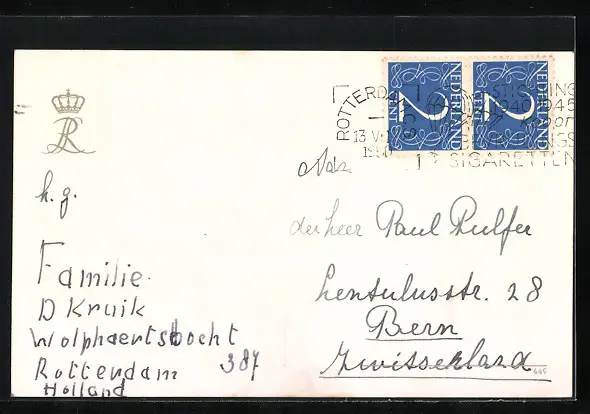 h. g.
Familie.
D Kruik
Wolphaertsbocht
387
Rotterdam
Holland
NEDERLAND
2
CENT
NEDERLAND
2
CENT
ROTTERDAM
13 V
1940 1945
SIGARETTEN
der heer Paul Pulfer
Lentulusstr. 28
Bern
Zwitserland
445